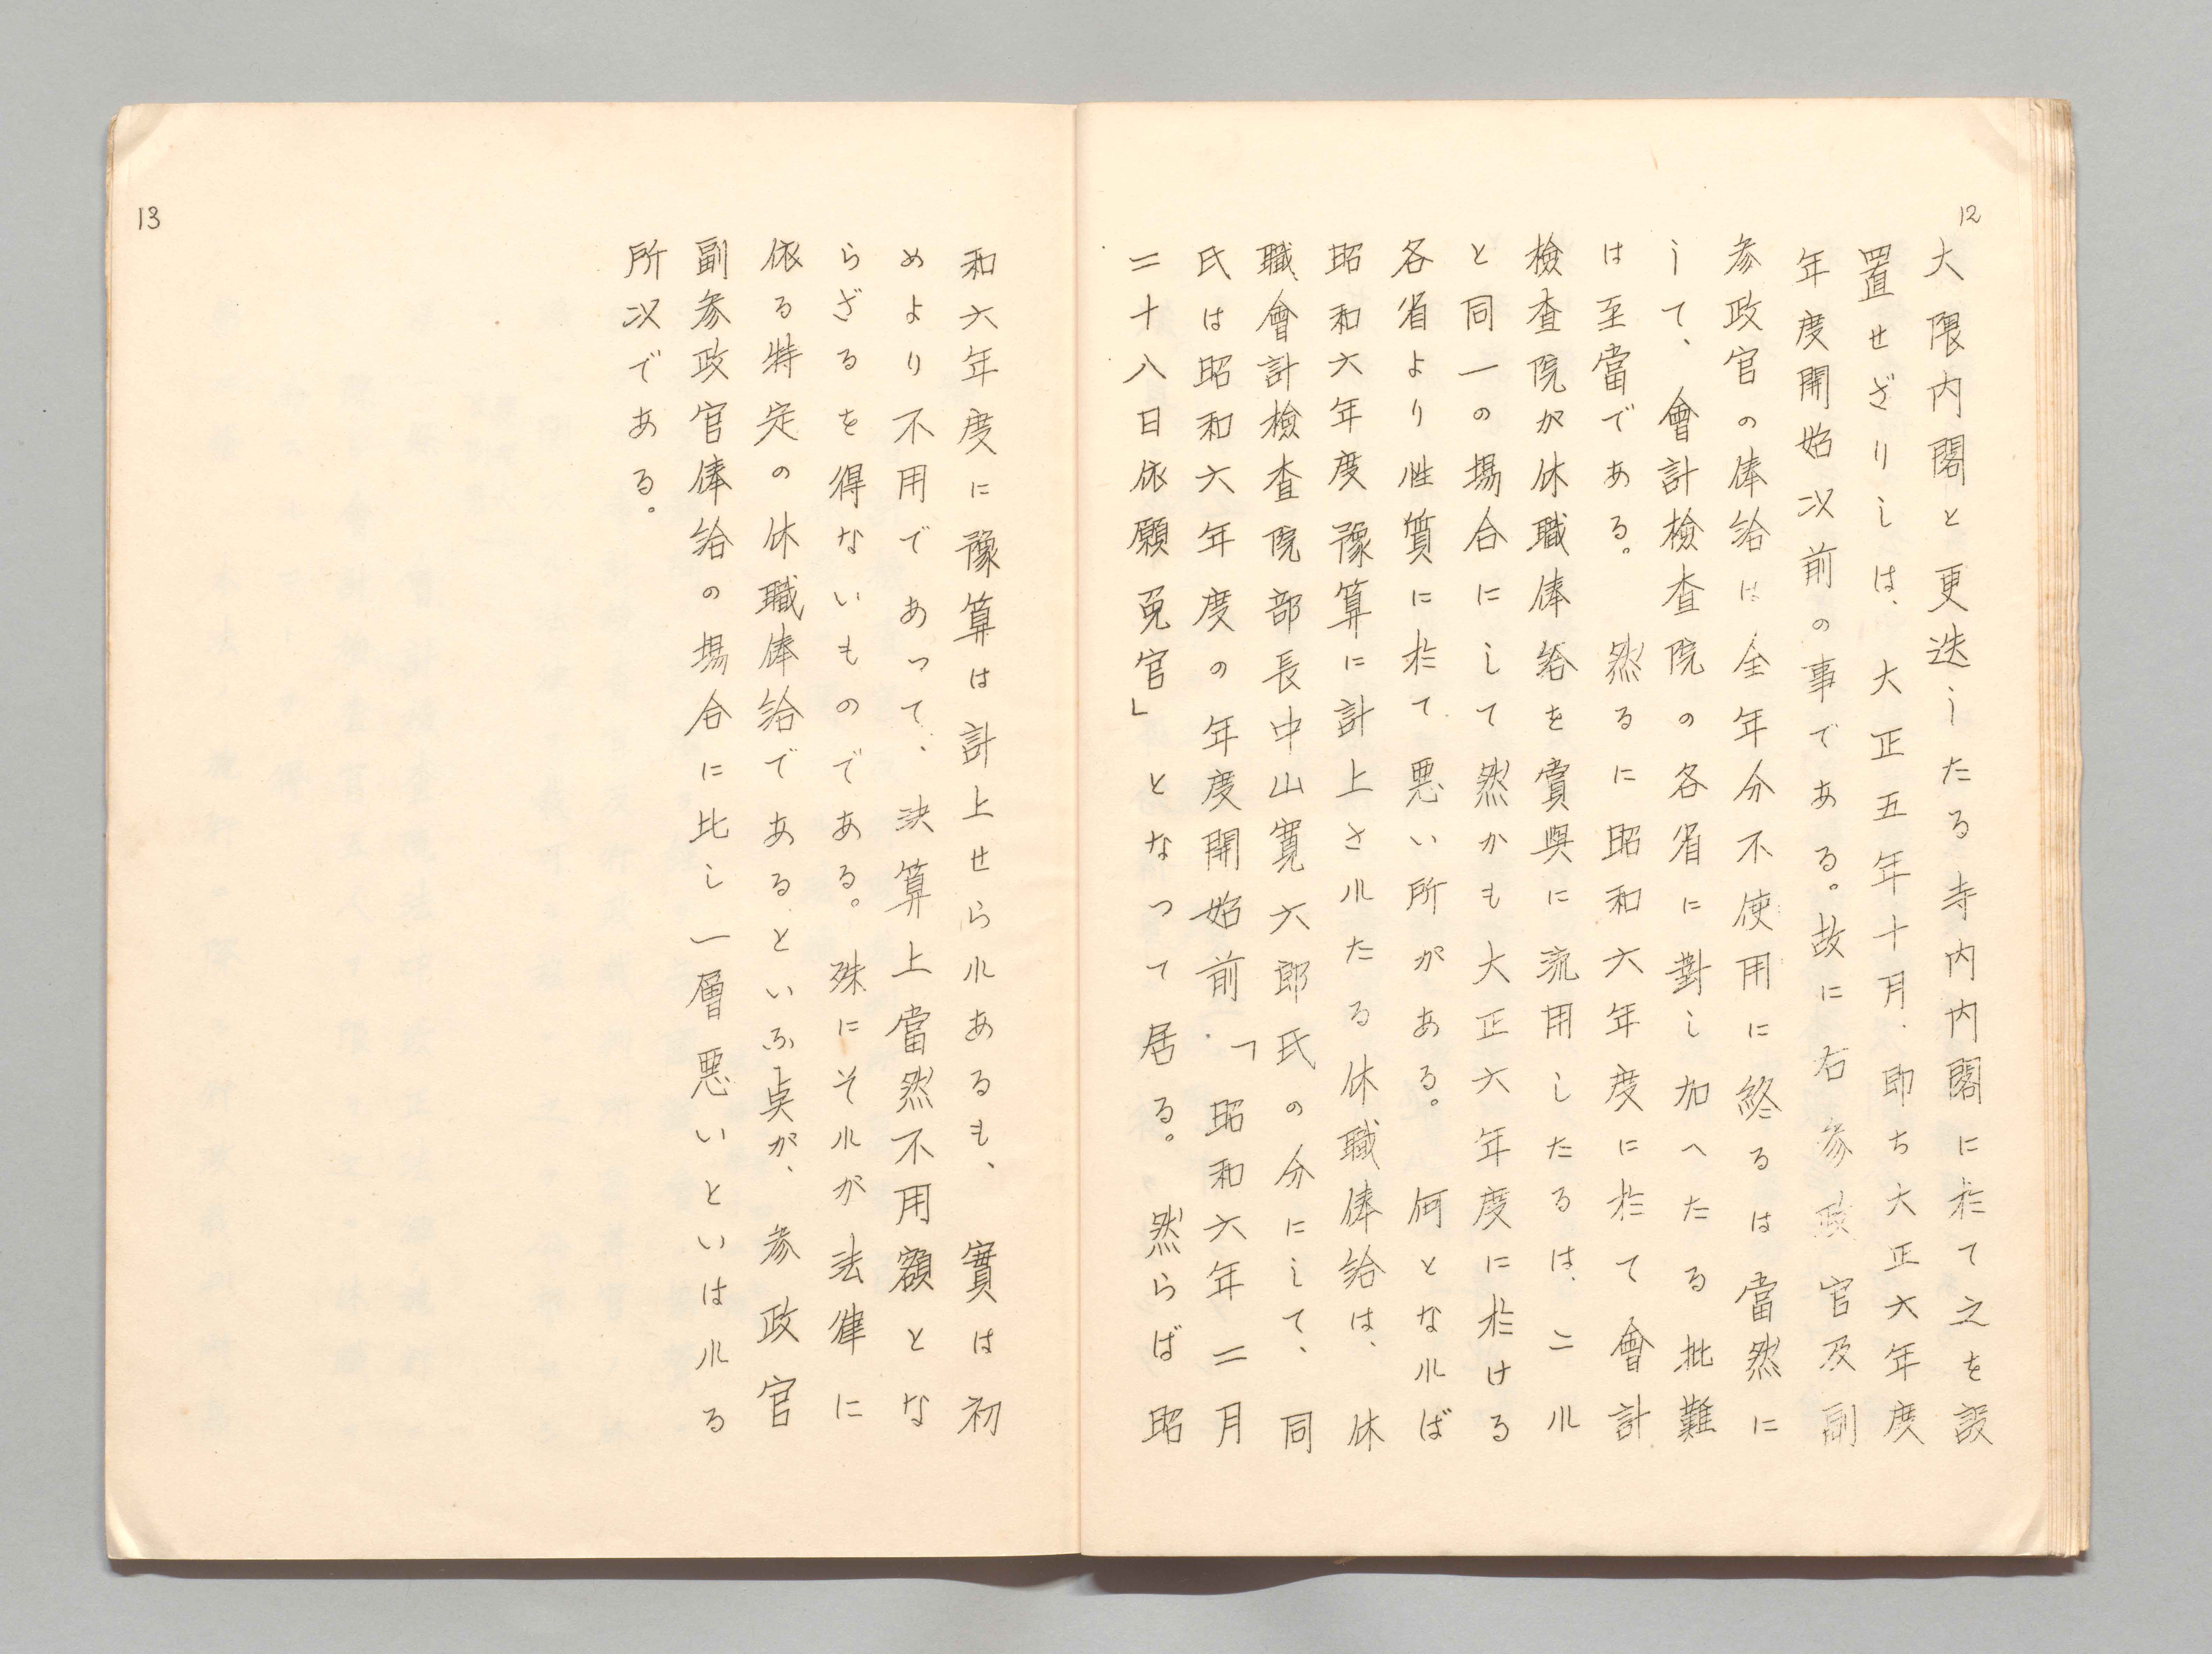 12
大隈内閣と更迭したる寺内内閣に於て之を設
置せざりしは、大正五年十月、即ち大正六年度
年度開始以前の事である。故に右参政官及副
参政官の俸給は全年分不使用に終るは當然に
して、會計檢査院の各省に對し加へたる批難
は至當である。然るに昭和六年度に於て會計
檢査院が休職俸給を賞與に流用したるは、これ
と同一の場合にして然かも大正六年度に於ける
各省より性質に於て悪い所がある。何となれば
昭和六年度豫算に計上されたる休職俸給は、休
職會計檢査院部長中山寛六郎氏の分にして、同
氏は昭和六年度の年度開始前、「昭和六年二月
二十八日依願免官」となつて居る。然らば昭
和六年度に豫算は計上せられあるも、實は初
めより不用であつて、決算上當然不用額とな
らざるを得ないものである。殊にそれが法律に
依る特定の休職俸給であるといふ点が、参政官
副参政官俸給の場合に比し一層悪いといはれる
所以である。
13